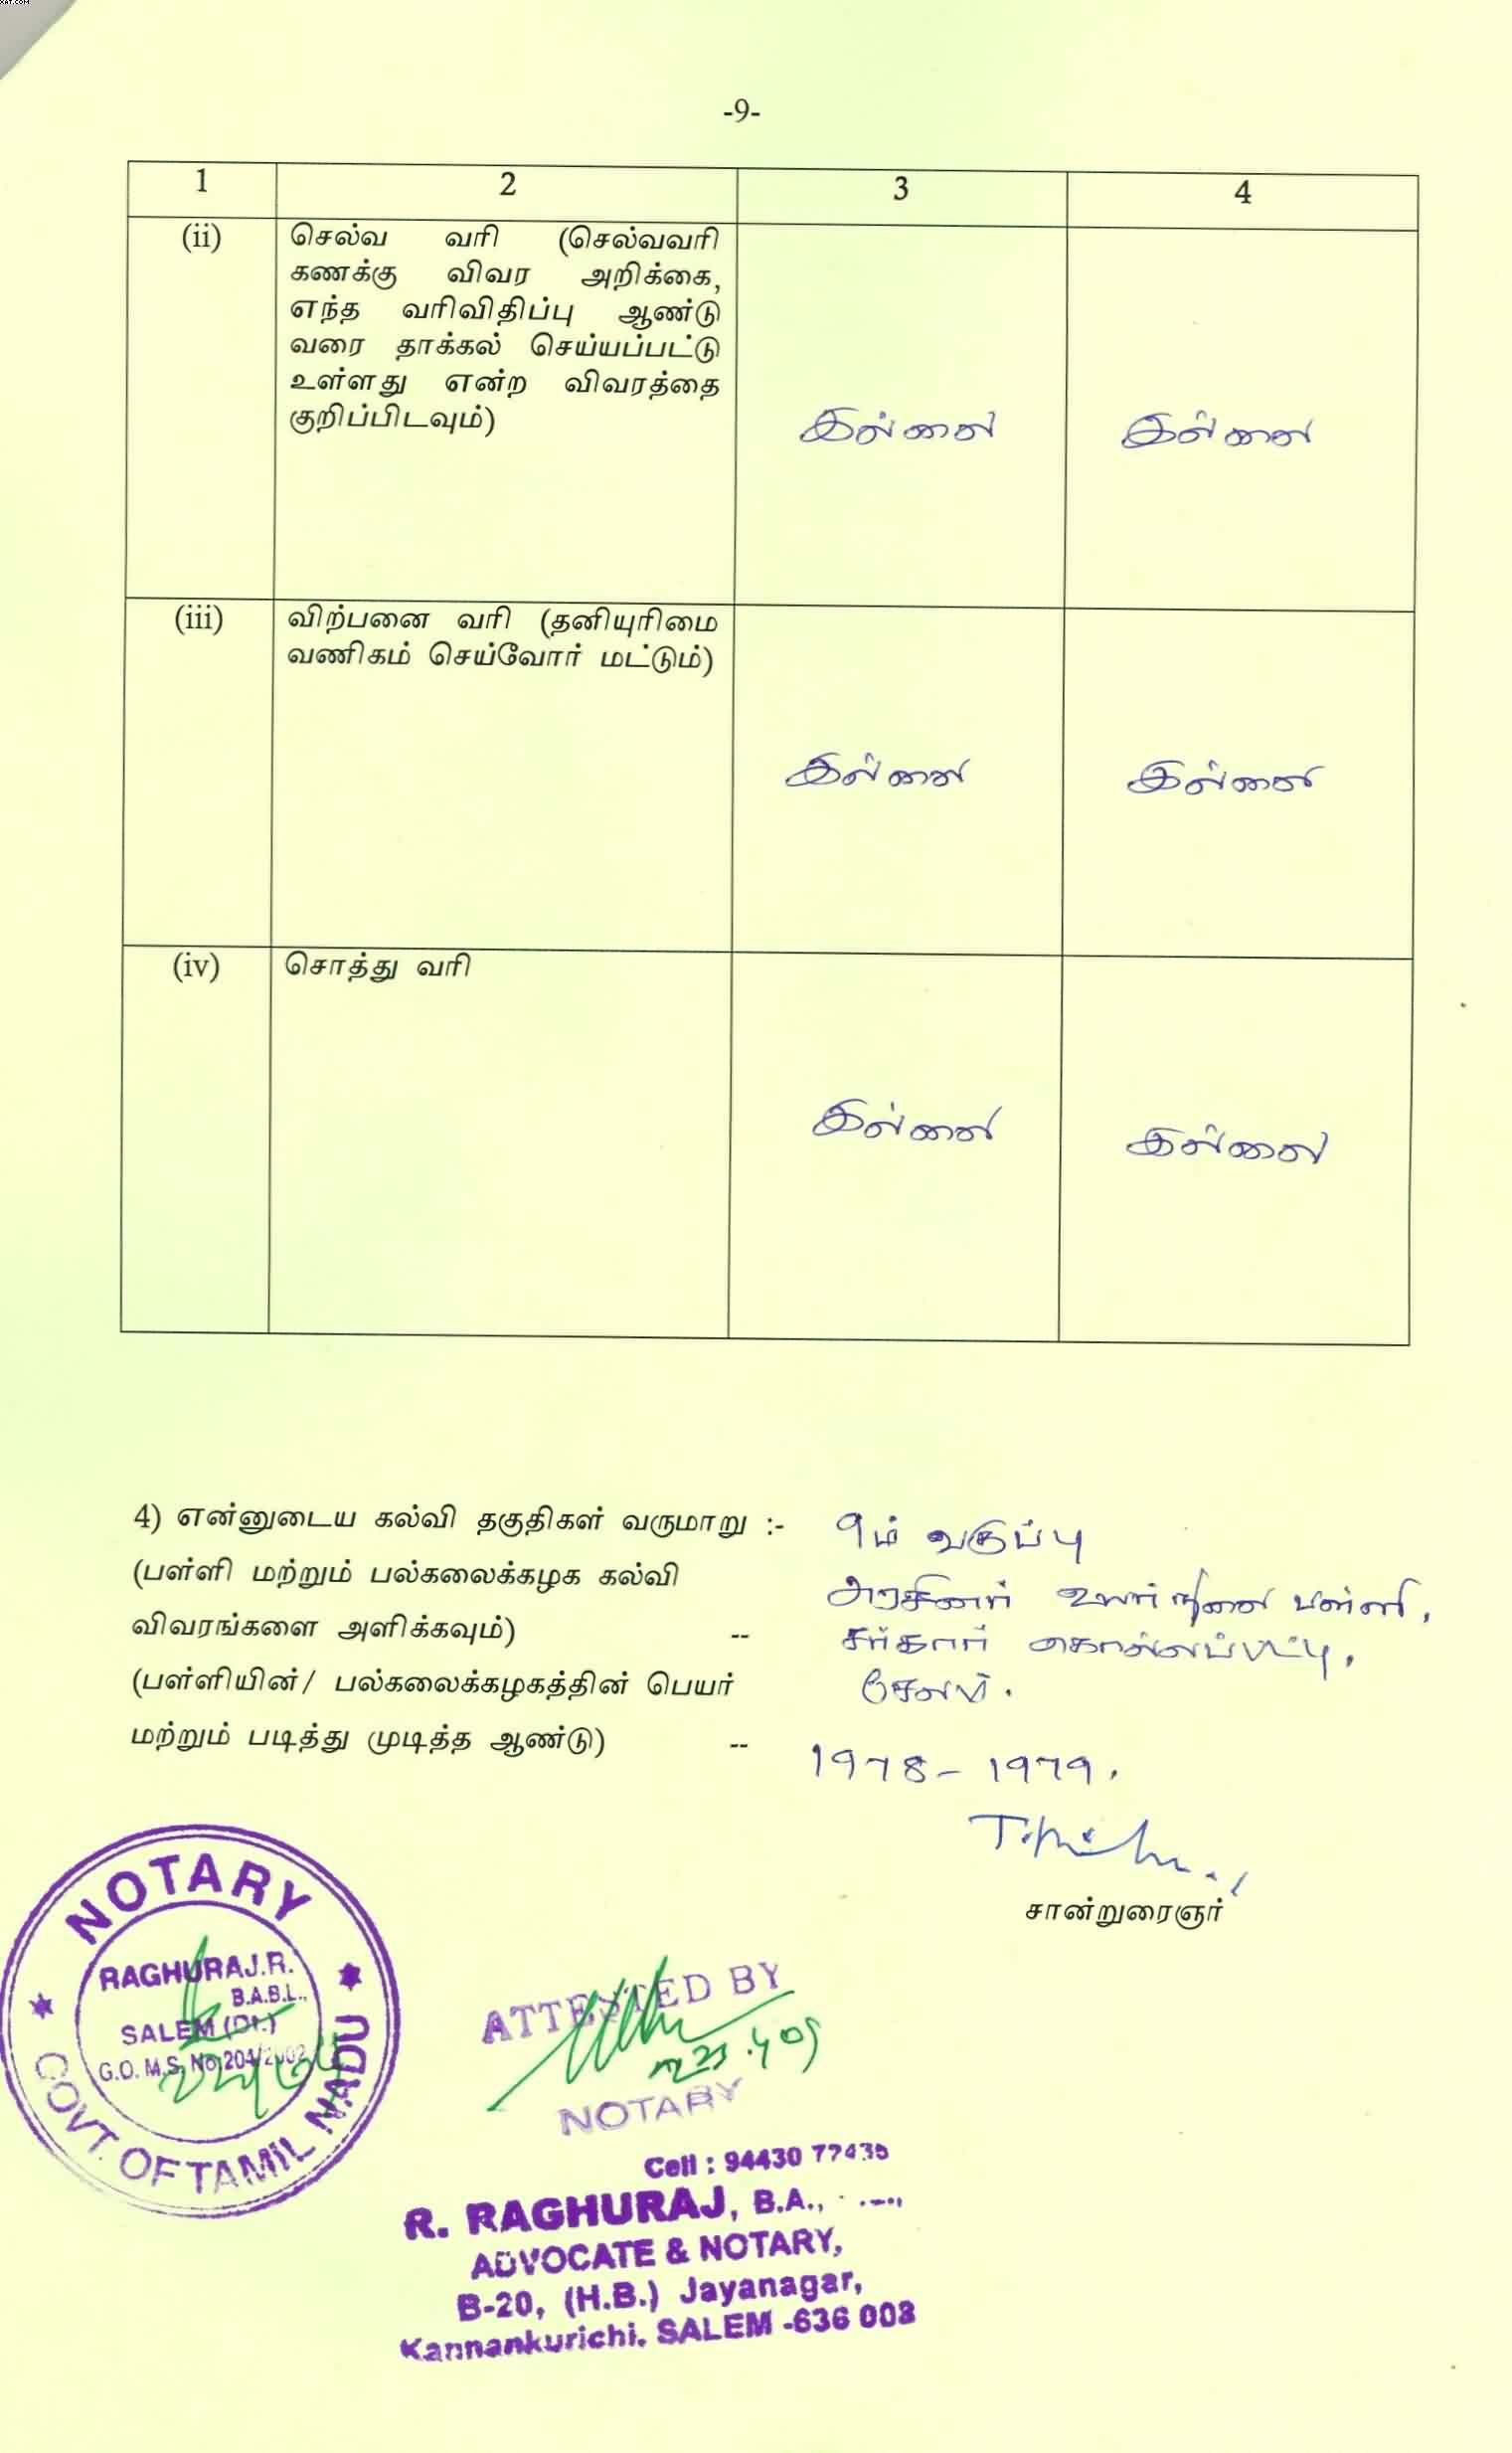 XAT.COM
-9-
1 2 3 4
(ii) செல்வ வரி (செல்வவரி
கணக்கு விவர அறிக்கை,
எந்த வரிவிதிப்பு ஆண்டு
வரை தாக்கல் செய்யப்பட்டு
உள்ளது என்ற விவரத்தை
குறிப்பிடவும்)
இல்லை இல்லை
(iii) விற்பனை வரி (தனியுரிமை
வணிகம் செய்வோர் மட்டும்)
இல்லை இல்லை
(iv) சொத்து வரி
இல்லை இல்லை
4) என்னுடைய கல்வி தகுதிகள் வருமாறு :- 9ம் வகுப்பு
(பள்ளி மற்றும் பல்கலைக்கழக கல்வி அரசினர் உயர்நிலை பள்ளி,
விவரங்களை அளிக்கவும்) -- சர்கார் கொல்லப்பட்டி,
(பள்ளியின்/ பல்கலைக்கழகத்தின் பெயர் சேலம்.
மற்றும் படித்து முடித்த ஆண்டு) -- 1978-1979.
சான்றுரைஞர்
NOTARY
RAGHURAJ.R.
B.A.B.L.,
SALEM (Dt.)
G.O. M.S. No.204/2002
GOVT. OF TAMIL NADU
ATTESTED BY
NOTARY
Cell : 94430 77435
R. RAGHURAJ, B.A.,
ADVOCATE & NOTARY,
B-20, (H.B.) Jayanagar,
Kannankurichi, SALEM -636 008